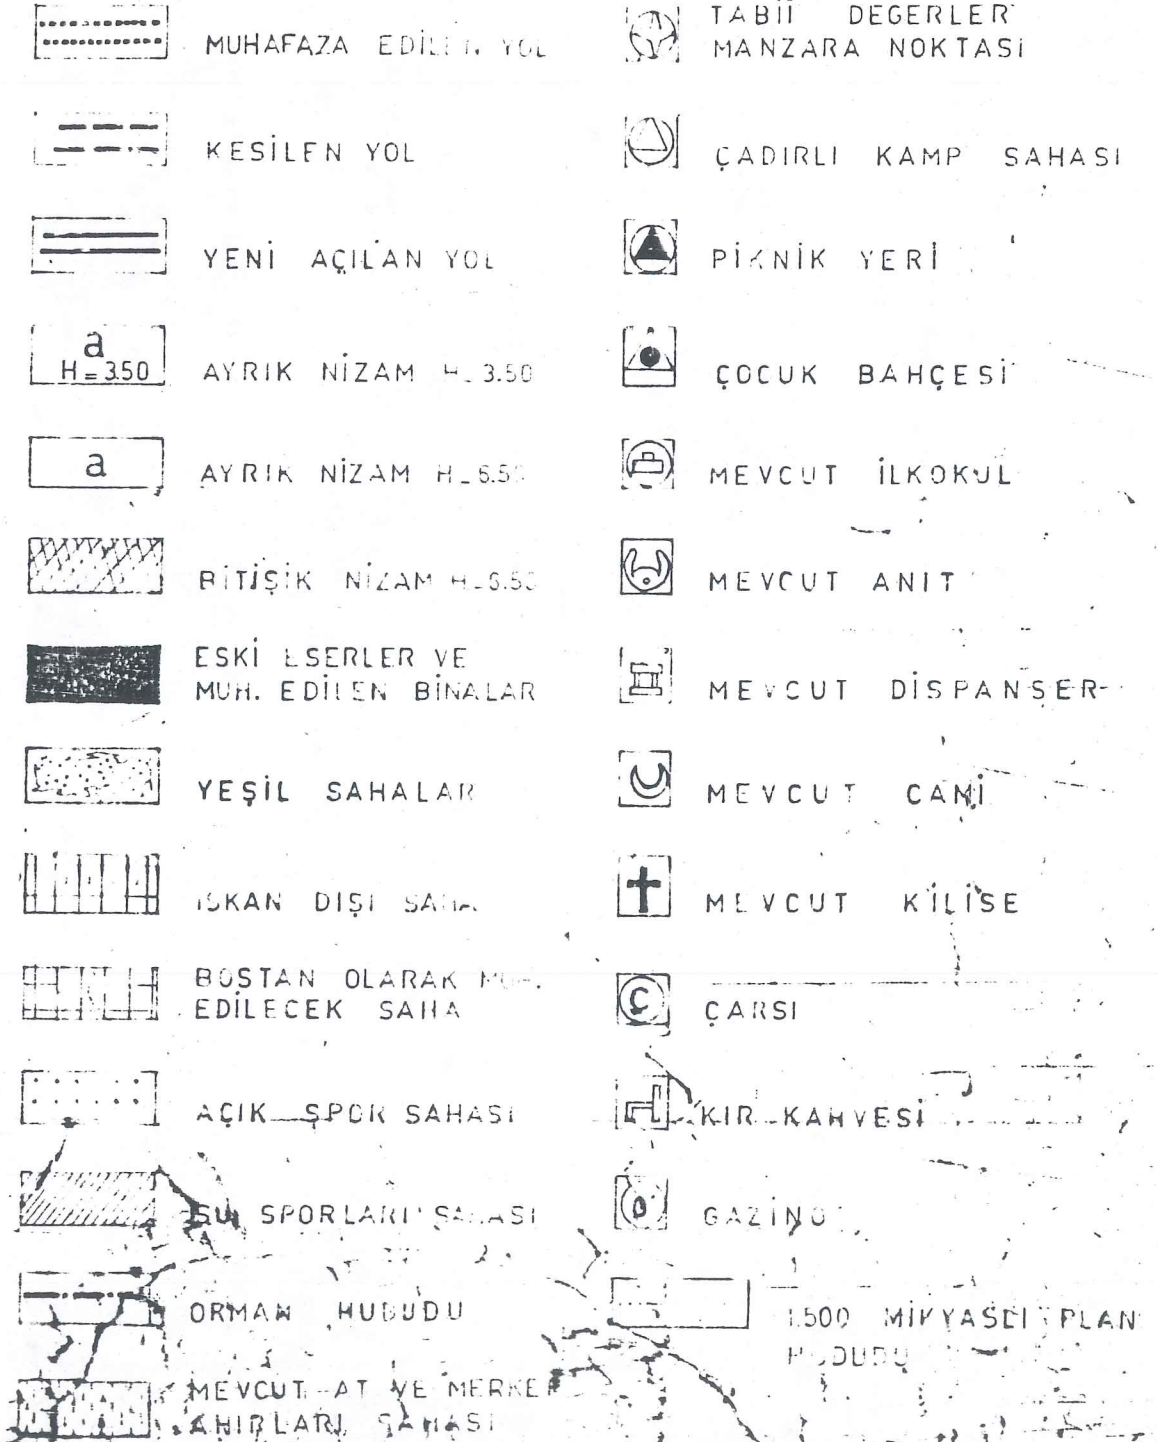 MUHAFAZA EDİLEN YOL
KESİLEN YOL
YENİ AÇILAN YOL
a
H = 3.50
AYRIK NİZAM H_ 3.50
a
AYRIK NİZAM H_ 6.50
BİTİŞİK NİZAM H_6.50
ESKİ ESERLER VE
MUH. EDİLEN BİNALAR
YEŞİL SAHALAR
İSKAN DIŞI SAHA
BOSTAN OLARAK MUH.
EDİLECEK SAHA
AÇIK SPOR SAHASI
SU SPORLARI SAHASI
ORMAN HUDUDU
MEVCUT AT VE MERKEP
AHIRLARI SAHASI
TABİİ DEĞERLER
MANZARA NOKTASI
ÇADIRLI KAMP SAHASI
PİKNİK YERİ
ÇOCUK BAHÇESİ
MEVCUT İLKOKUL
MEVCUT ANIT
MEVCUT DİSPANSER
MEVCUT CAMİ
MEVCUT KİLİSE
Ç
ÇARSI
KIR KAHVESİ
GAZİNO
1.500 MİKYASLI PLAN
HUDUDU